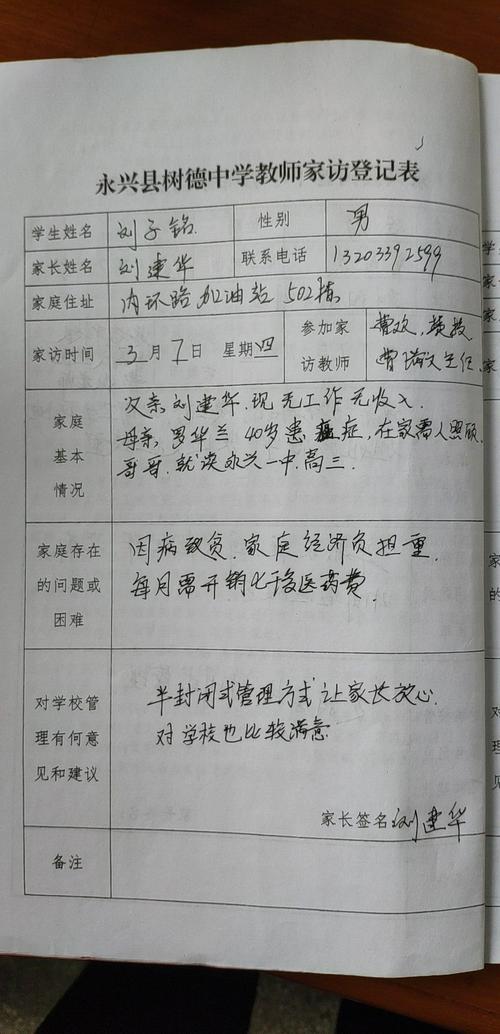 永兴县树德中学教师家访登记表
学生姓名 刘子铭 性别 男
家长姓名 刘建华 联系电话 13203392599
家庭住址 内环路加油站 502栋
家访时间 3月7日 星期四 参加家访教师 曹欢,
曹 主任
家庭基本情况 父亲刘建华.现无工作无收入.
母亲,罗华兰 40岁患 症,在家需人照顾
哥哥.就读永兴一中.高三.
家庭存在的问题或困难 因病致贫.家庭经济负担重.
每月需开销 医药费
对学校管理有何意见和建议 半封闭式管理方式让家长放心.
对学校也比较满意
家长签名 刘建华
备注